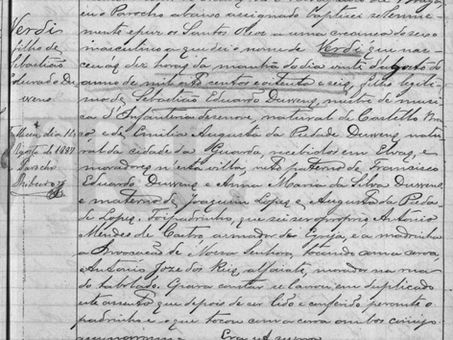 Verdi
filho de
Sebastião
Eduardo Du
wens
o Parocho abaixo assignado baptizei solemne
mente e puz os Santos Oleos a uma creança de sexo
masculino a quem dei o nome de Verdi que nas
ceu ás dez horas da manhã do dia vinte d'Agosto do
anno de mil oito centos oitenta e seis, filho legiti
mo de Sebastião Eduardo Duwens, mestre de musi
ca d'Infanteria desenove, natural de Castello Bran
co e de Emilia Augusta da Piedade Duwens natu
ral da cidade da Guarda, recebidos em Elvas, e
moradores n'esta villa, neto paterno de Francisco
Eduardo Duwens e Anna Maria da Silva Duwens,
e materno de Joaquim Lopes e Augusta da Pieda
de Lopes. Foi padrinho, que sei ser o proprio Antonio
Mendes de Castro, armador da Egreja, e a madrinha
a Invocação de Nossa Senhora, tocando com a corôa,
Antonio Joze dos Reis, alfaiate, morador na rua
do Taboladо. E para constar se lavrou em duplicado
este assento que depois de ser lido e conferido perante o
padrinho e o que tocou com a corôa ambos comigo
Era ut supra